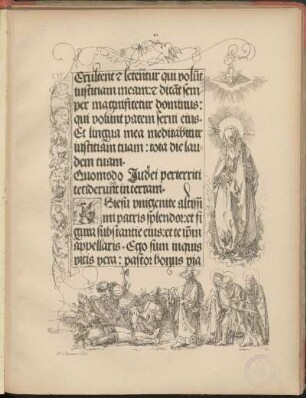 Exultent & letentur qui volūt
iustitiam meam: & dicāt sem
per magnificetur dominus:
qui volunt pacem servi eius.
Et lingua mea meditabitur
iustitiam tuam: tota die lau
dem tuam.
Quomodo Judei perterriti
ceciderunt in terram.
O Jhesu unigenite altissi
mi patris splendor: et fi
gura substantie eius: et te ipm̄
appellaris. Ego sum inquis
vitis vera: pastor bonus via